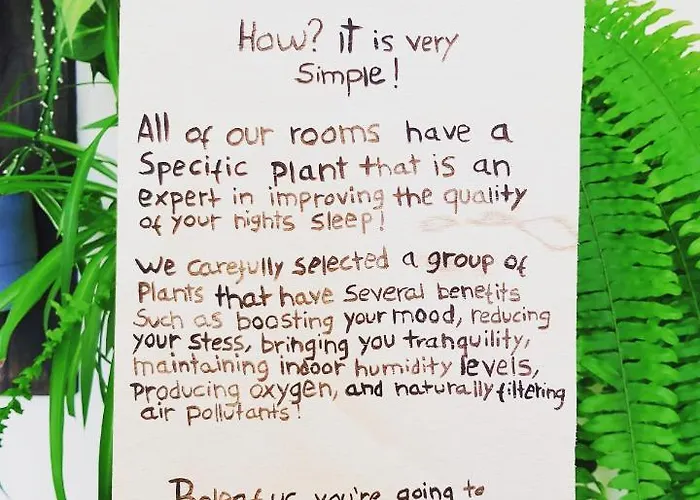 How? it is very
Simple!
All of our rooms have a
Specific plant that is an
expert in improving the quality
of your nights sleep!
We carefully selected a group of
Plants that have several benefits
Such as boosting your mood, reducing
your stess, bringing you tranquility,
maintaining indoor humidity levels,
Producing oxygen, and naturally filtering
air pollutants!
you're going to